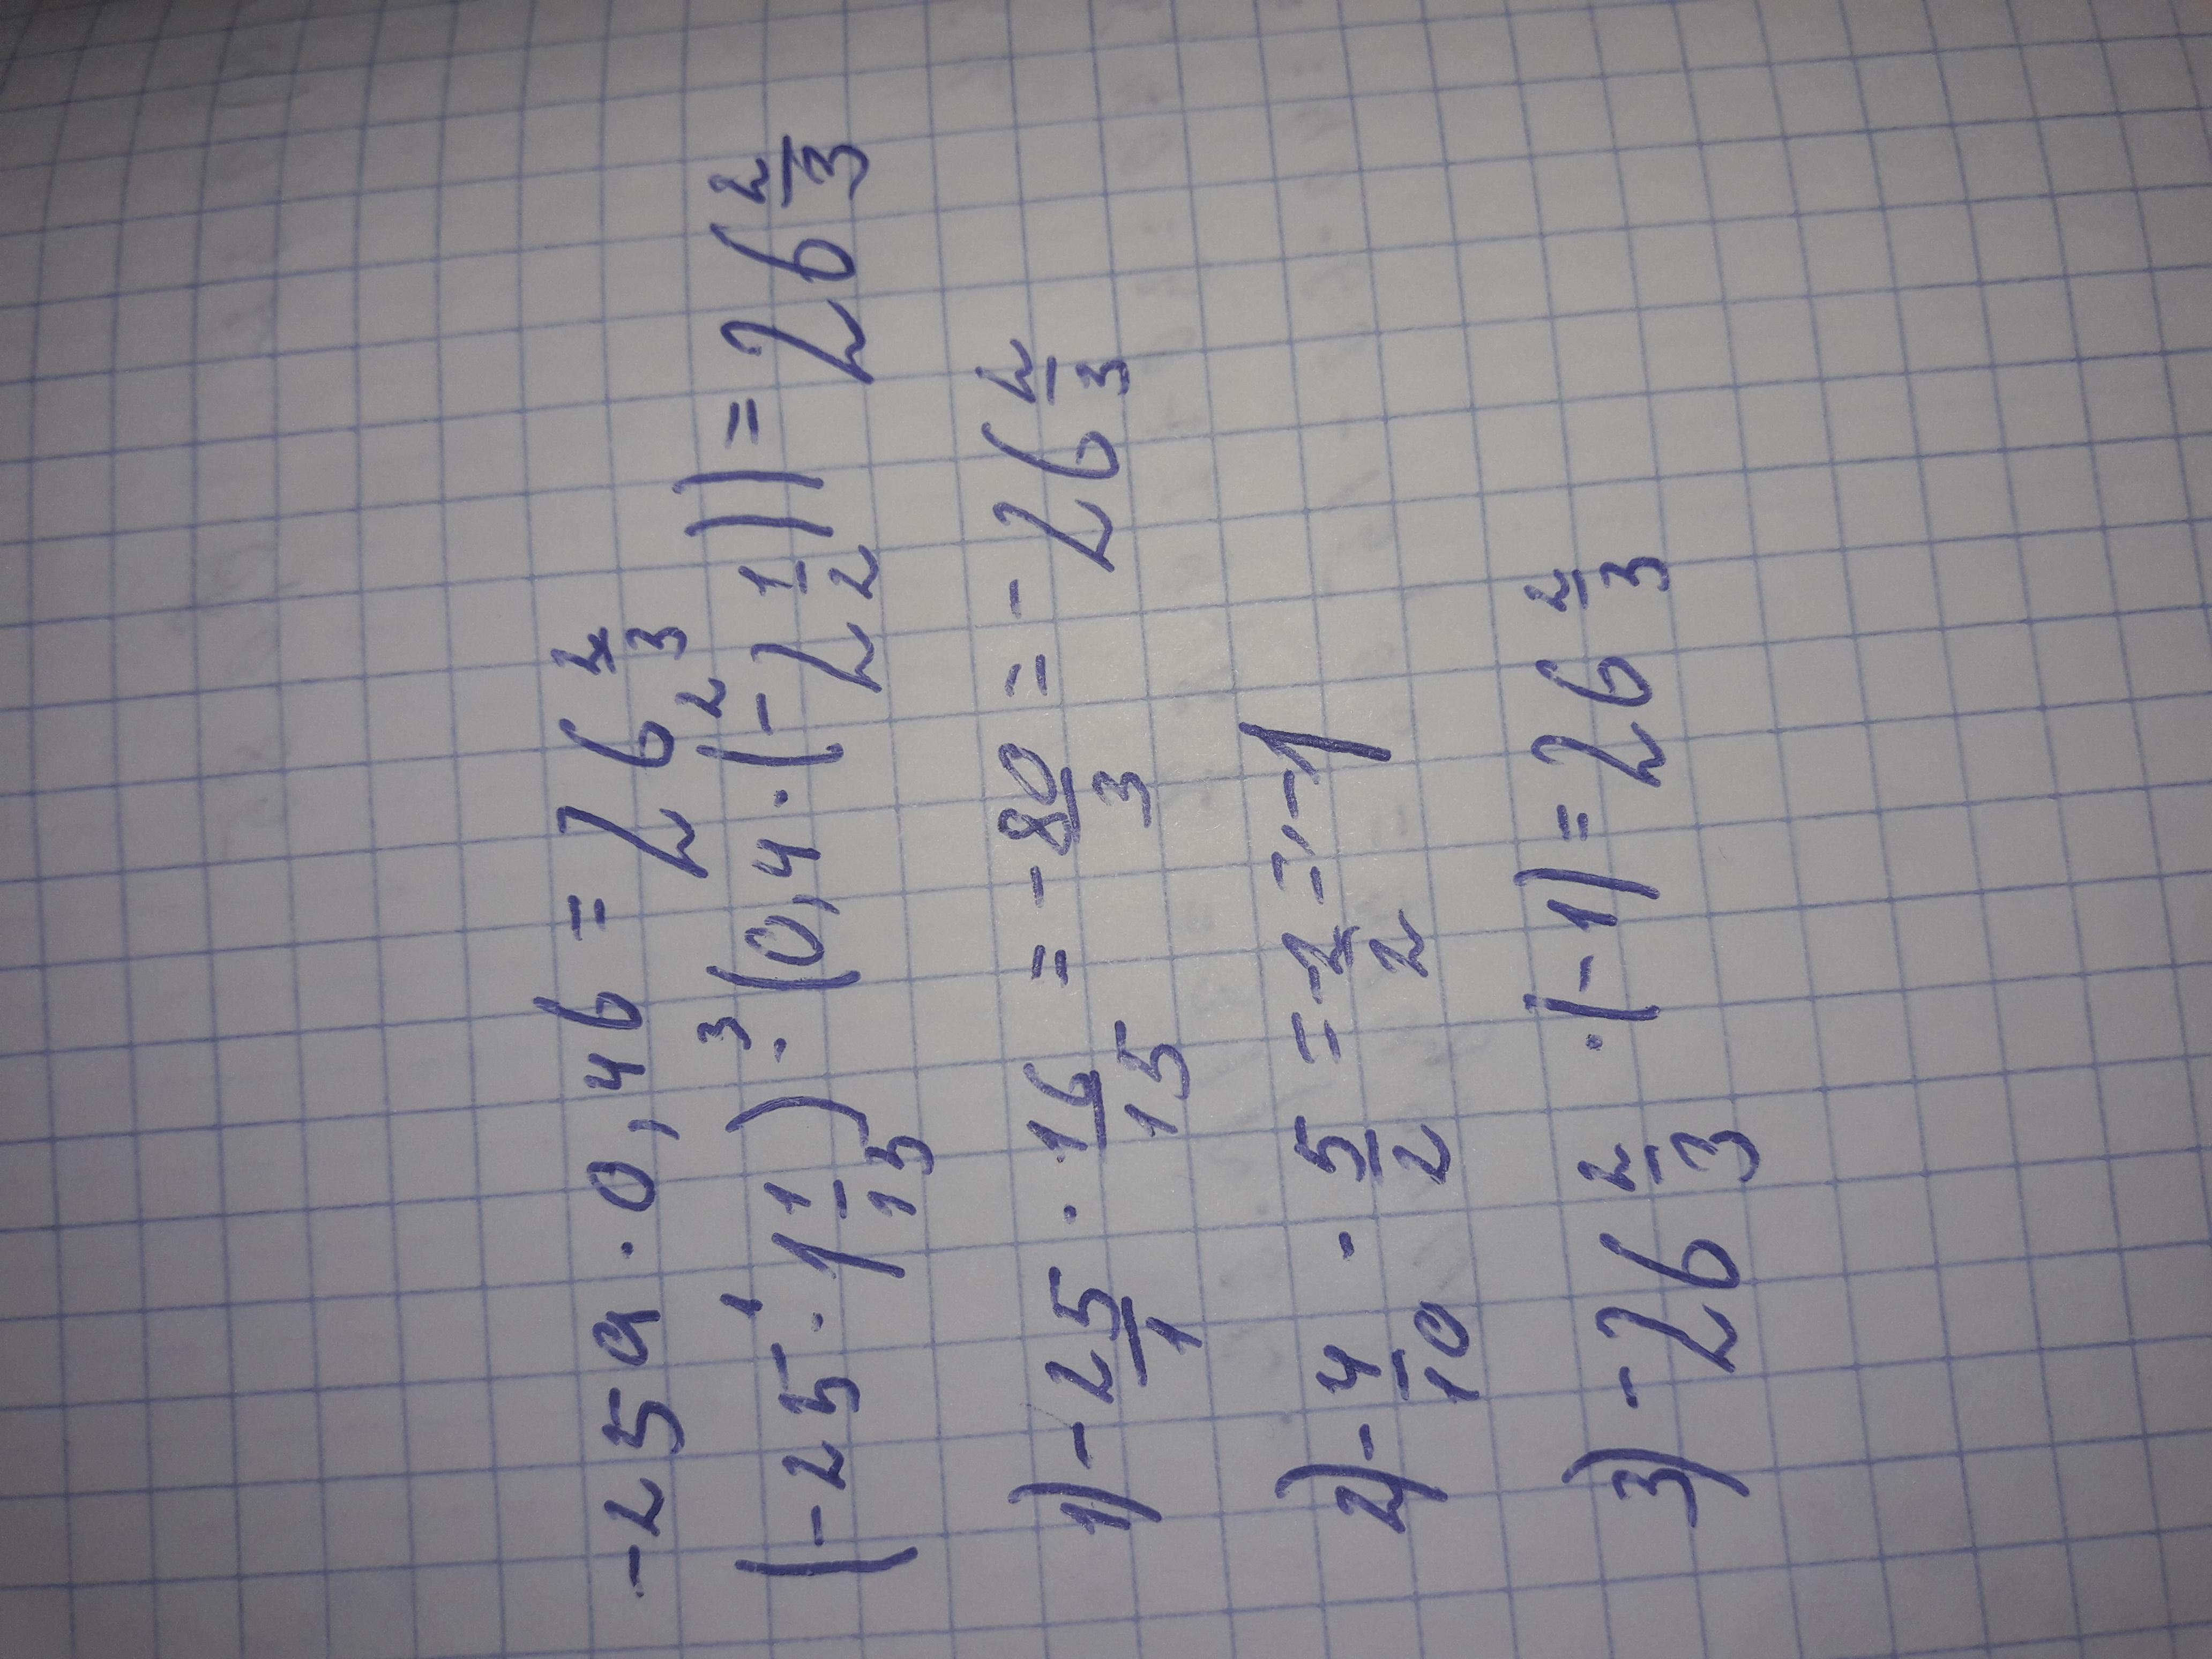 -25a · 0,4b = 26 2/3
(-25 ·¹ 1 1/15) ·³ (0,4 · (-² 2 1/2)) = 26 2/3
1) - 25/1 · 16/15 = - 80/3 = - 26 2/3
2) - 4/10 · 5/2 = - 2/2 = - 1
3) - 26 2/3 · (-1) = 26 2/3